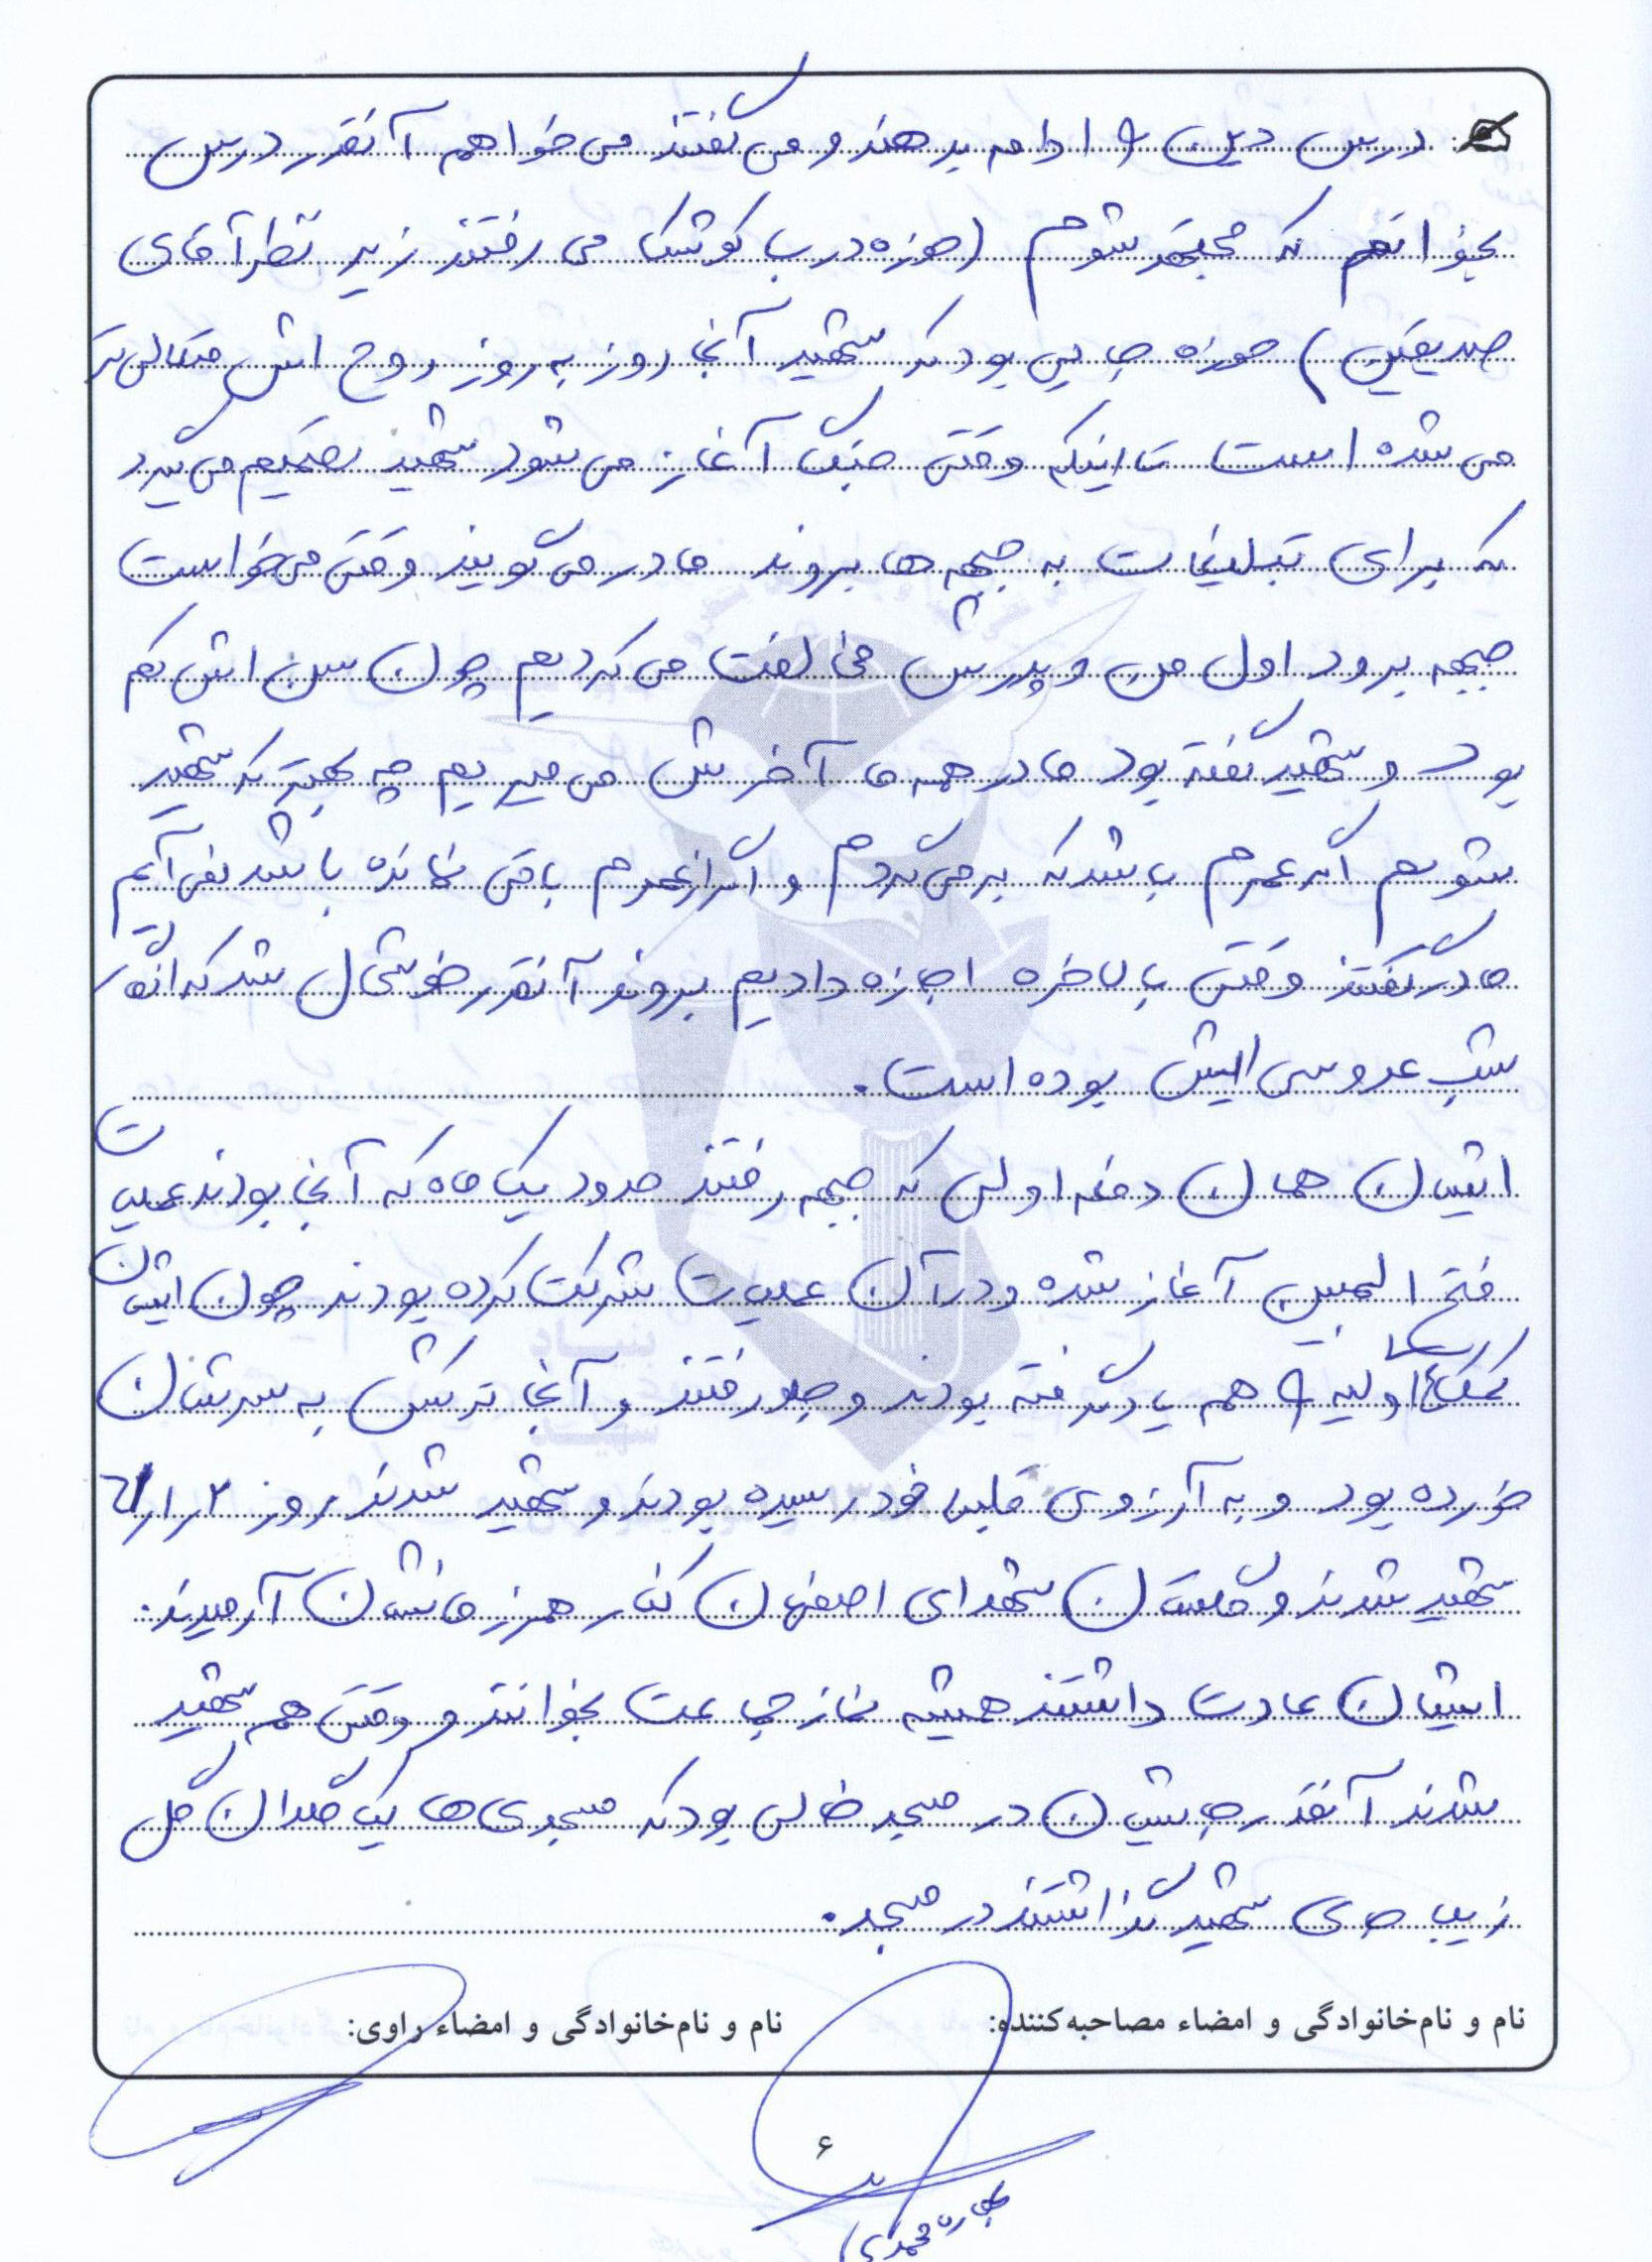 درس دین را ادامه بدهند و می گفتند می خواهم آنقدر درس
بخوانم که مجتهد شوم (حوزه درب کوشک می رفتند زیر نظر آقای
صدیقین) حوزه جایی بود که شهید آنجا روز به روز روح اش متعالی تر
می شده است تا اینکه وقتی جنگ آغاز می شود شهید تصمیم می گیرد
که برای تبلیغات به جبهه ها بروند مادر می گویند وقتی می خواست
جبهه برود اول من و پدرش مخالفت می کردیم چون سن اش کم
بود و شهید گفته بود مادر همه ما آخرش می میریم چه بهتر که شهید
شویم اگر عمرم باشد که برمی گردم و اگر از عمرم باقی نمانده باشد نمی آیم
مادر گفتند وقتی بالاخره اجازه دادیم بروند آنقدر خوشحال شد که انگار
شب عروسی اییش بوده است.
ایشان همان دفعه اولی که جبهه رفتند حدود یک ماه که آنجا بودند عملیات
فتح المبین آغاز شده و در آن عملیات شرکت کرده بودند چون ایشان
کمک های اولیه را هم یاد گرفته بودند و جلو رفتند و آنجا ترکش به سرشان
خورده بود و به آرزوی قلبی خود رسیده بودند و شهید شدند روز ۲/۱/۶۱
شهید شدند و گلستان شهدای اصفهان کنار همرزمانشان آرمیدند.
ایشان عادت داشتند همیشه نماز جماعت بخوانند و وقتی هم شهید
شدند آنقدر جایشان در مسجد خالی بود که مسجدی ها یک گلدان گل
زیبا جای شهید گذاشتند در مسجد.
نام و نام‌خانوادگی و امضاء مصاحبه‌کننده: نام و نام‌خانوادگی و امضاء راوی:
۶
محمدی